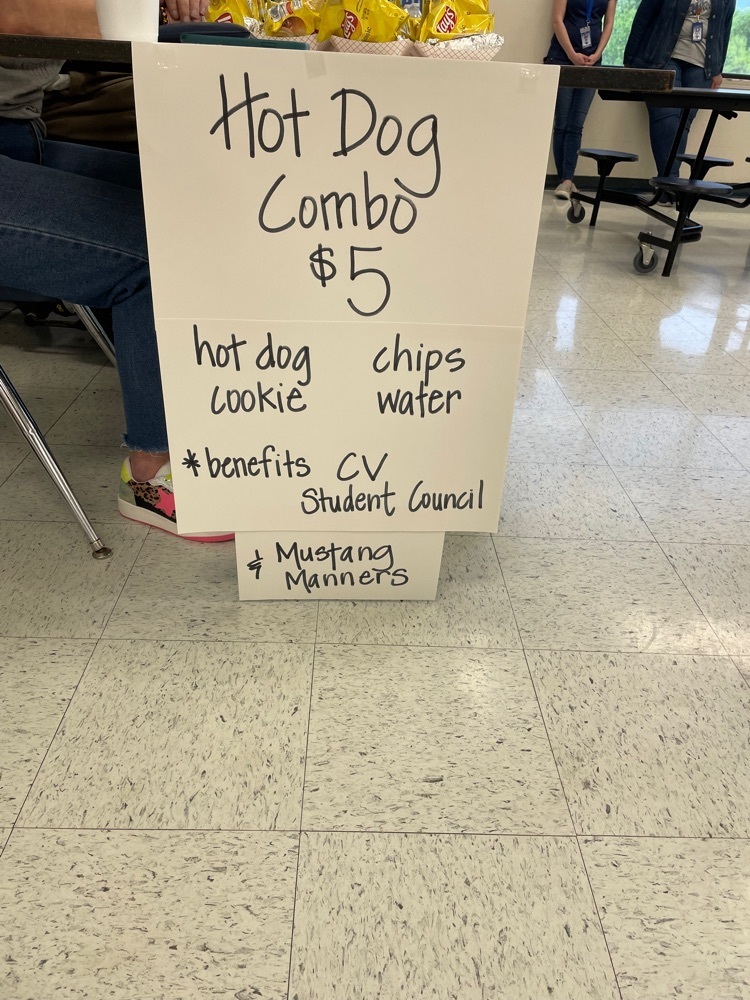 Lay's
Lay's
Hot Dog
Combo
$5
hot dog chips
cookie water
*benefits CV
Student Council
& Mustang
Manners